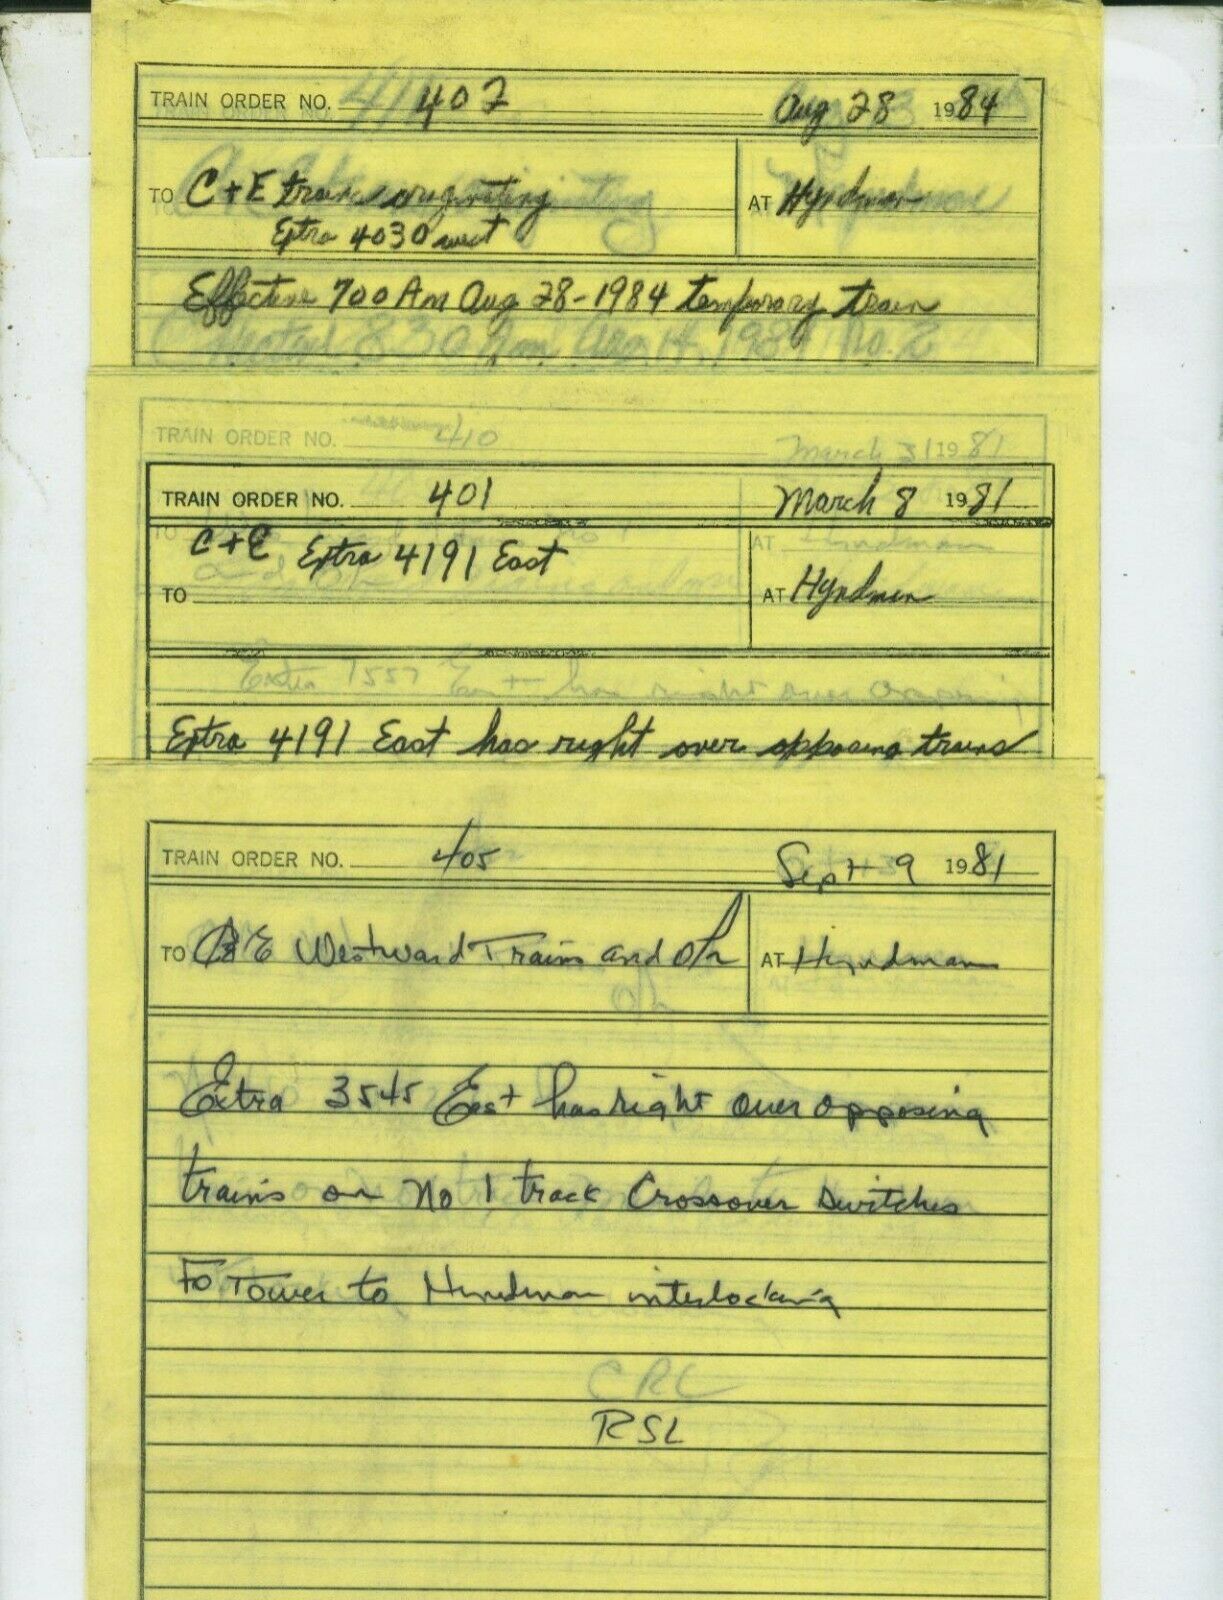 TRAIN ORDER NO. 402 Aug 28 1984
TO C + E trains originating AT Hyndman
Extra 4030 west
Effective 700 Am Aug 28-1984 temporary train
830 1984 No. 2
TRAIN ORDER NO. 410 March 31 1981
TRAIN ORDER NO. 401 March 8 1981
C + E Extra 4191 East AT Hyndman
TO AT Hyndman
Extra 1557 East has right over opposing
Extra 4191 East has right over opposing trains
TRAIN ORDER NO. 405 Sept 9 1981
TO C&E Westward Trains and o/h AT Hyndman
o/h
Extra 3545 East has right over opposing
trains on No 1 track Crossover switches
Fo Tower to Hyndman interlocking
CRL
RSL